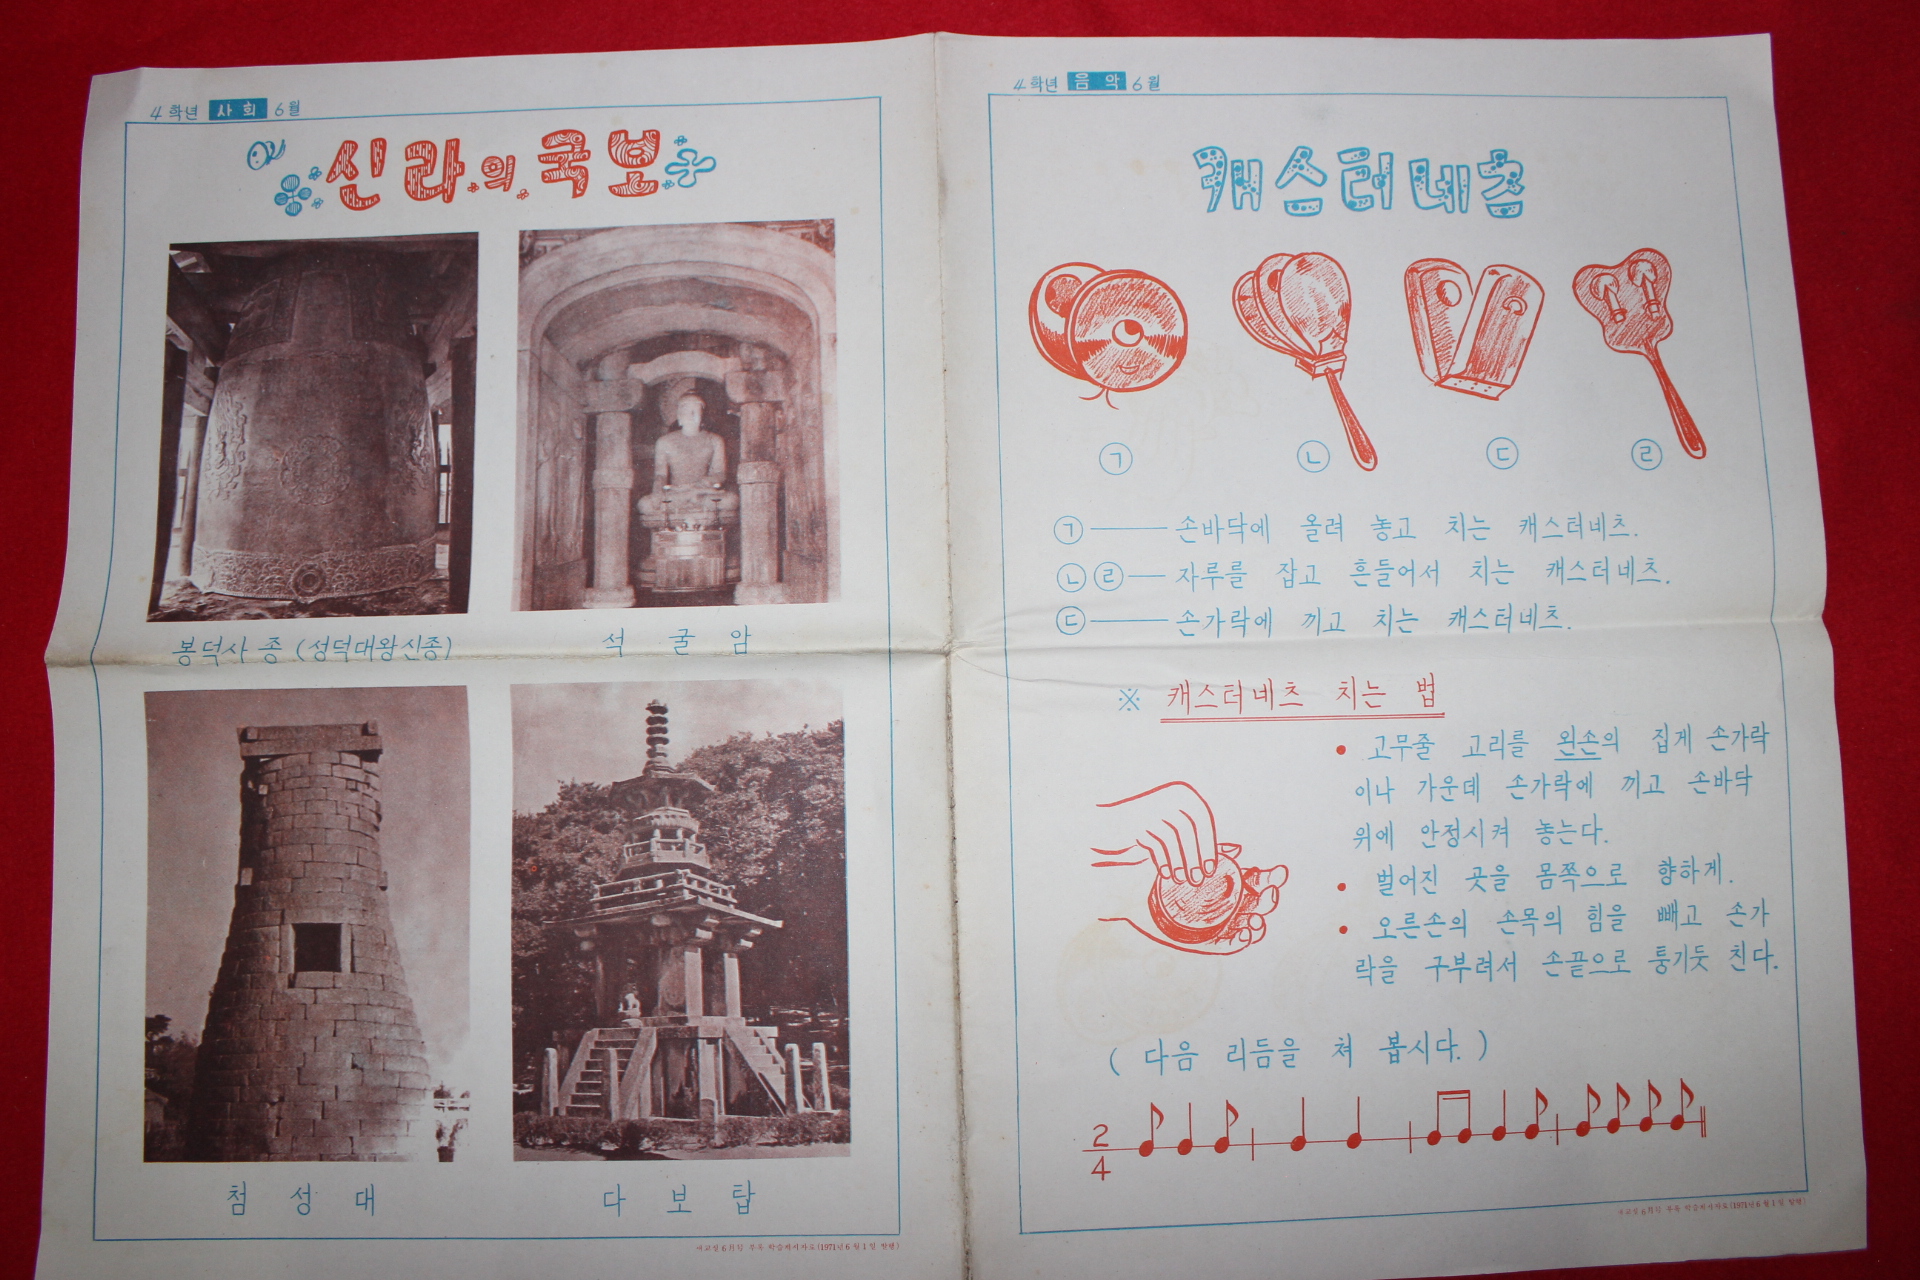 4학년 사회 6월
신라의 국보
봉덕사 종 (성덕대왕신종)
석 굴 암
첨 성 대
다 보 탑
새교실 6月호 부록 학습괘시자료(1971년 6월 1일 발행)
4학년 음악 6월
캐스터네츠
㉠ ㉡ ㉢ ㉣
㉠ 손바닥에 올려 놓고 치는 캐스터네츠.
㉡㉣ 자루를 잡고 흔들어서 치는 캐스터네츠.
㉢ 손가락에 끼고 치는 캐스터네츠.
※ 캐스터네츠 치는 법
• 고무줄 고리를 왼손의 집게 손가락
이나 가운데 손가락에 끼고 손바닥
위에 안정시켜 놓는다.
• 벌어진 곳을 몸쪽으로 향하게.
• 오른손의 손목의 힘을 빼고 손가
락을 구부려서 손끝으로 퉁기듯 친다.
( 다음 리듬을 쳐 봅시다. )
2
4
새교실 6月호 부록 학습괘시자료(1971년 6월 1일 발행)